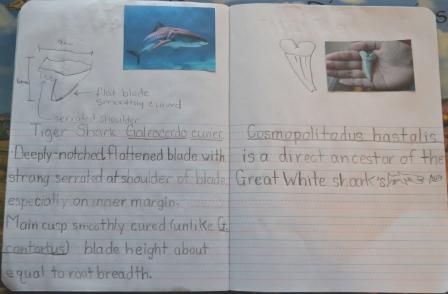 flat blade
smoothly cured
serrated shoulder
Tiger Shark Galeocerdo cuvier
Deeply-notched, flattened blade with
strong serrated at shoulder of blade,
especially on inner margin.
Main cusp smoothly cured (unlike G.
contortus) blade height about
equal to root breadth.
Cosmopolitodus hastalis
is a direct ancestor of the
Great White shark's